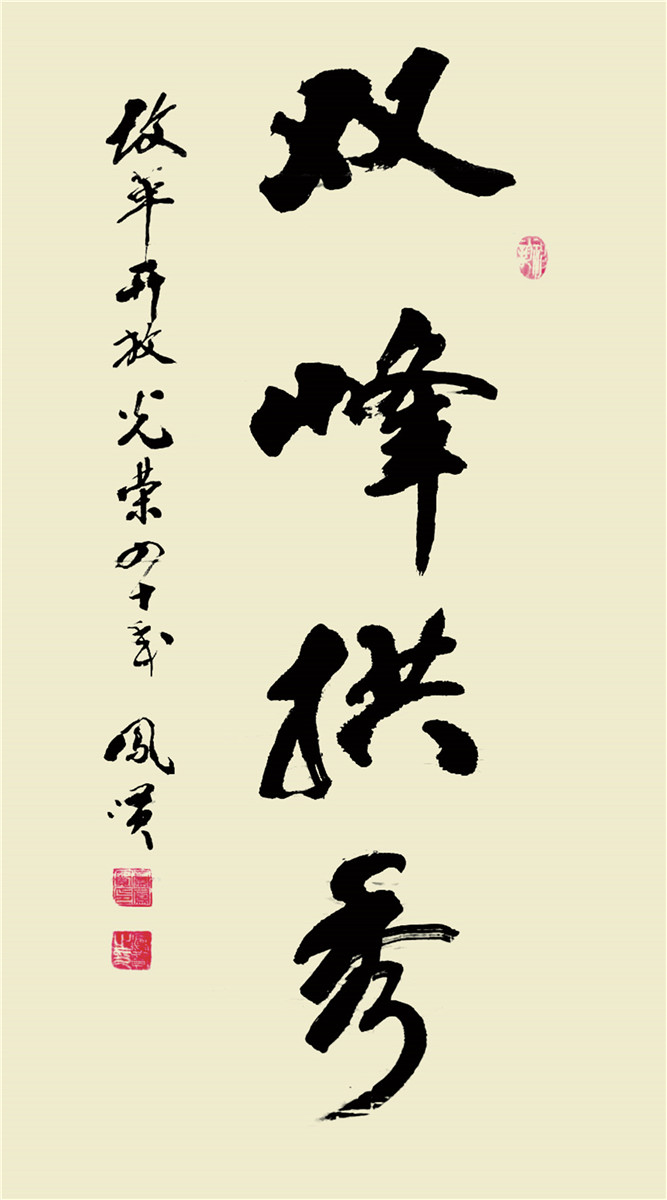 双峰拱秀
改革开放光荣四十年 凤